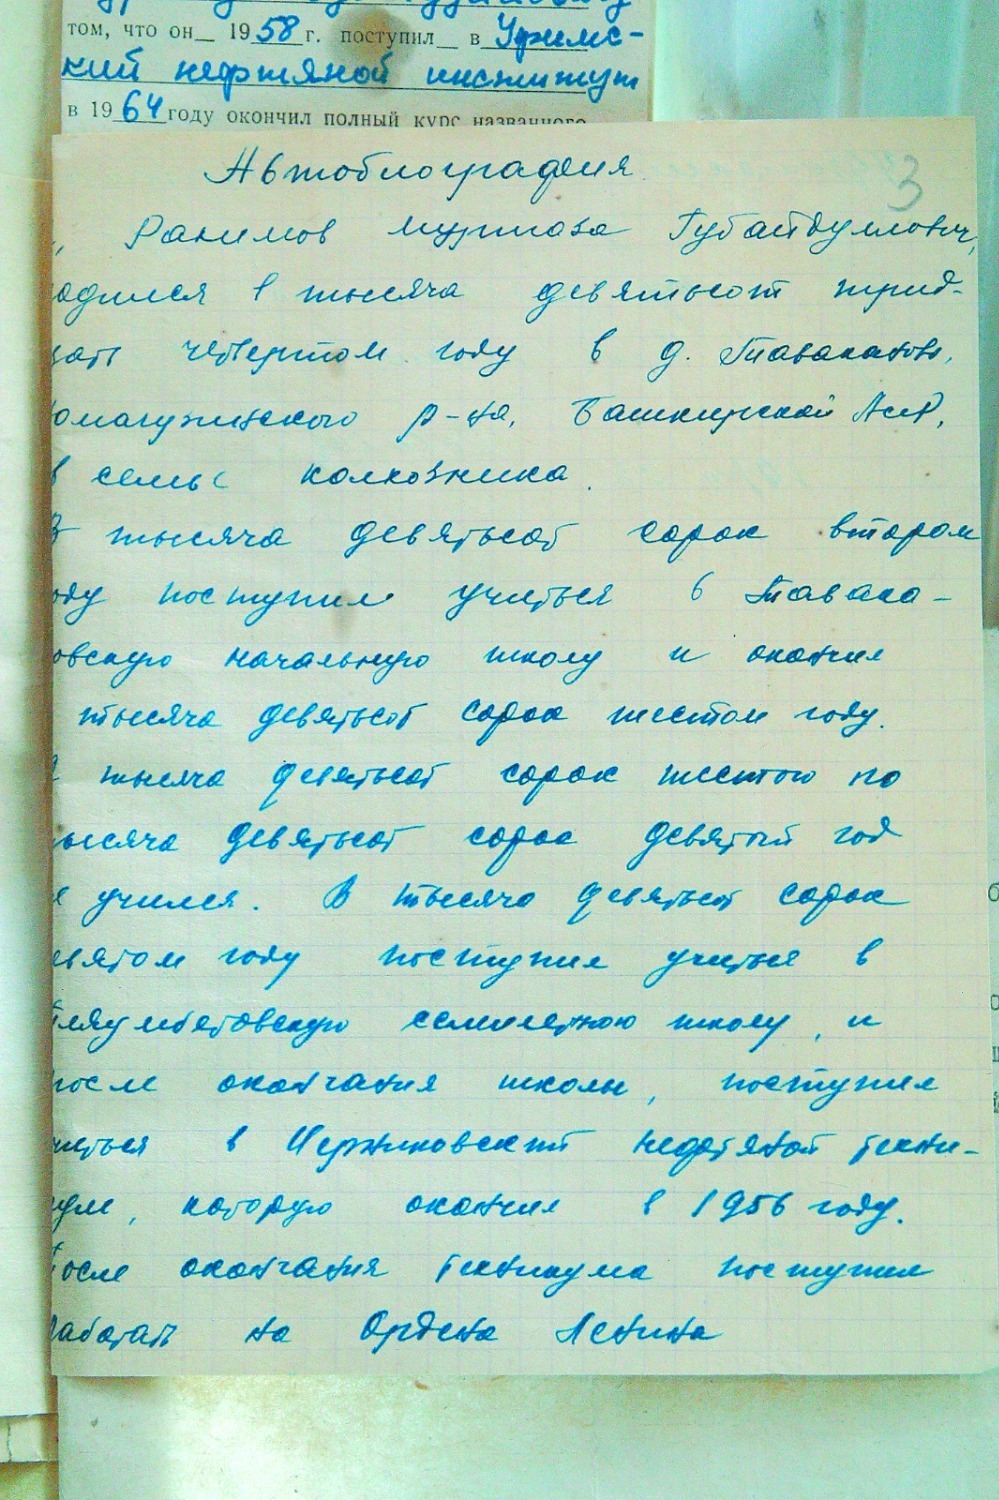 том, что он_ 1958 г. поступил_ в Уфимс-
кий нефтяной институт
в 1964 году окончил полный курс названного
3
Автобиография
Рахимов Муртаза Губайдуллович,
одился в тысяча девятьсот трид-
цать четвертом году в д. Таваканово,
юмагузинского р-на, Башкирской АССР,
в семье колхозника.
В тысяча девятьсот сорок втором
оду поступил учиться в Тавака-
овскую начальную школу и окончил
тысяча девятьсот сорок шестом году.
тысяча девятьсот сорок шестого по
ысяча девятьсот сорок девятый год
е учился. В тысяча девятьсот сорок
евятом году поступил учиться в
Тляумбетовскую семилетнюю школу, и
после окончания школы, поступил
читься в Черниковский нефтяной техни-
кум, которую окончил в 1956 году.
После окончания техникума поступил
работать на Ордена Ленина